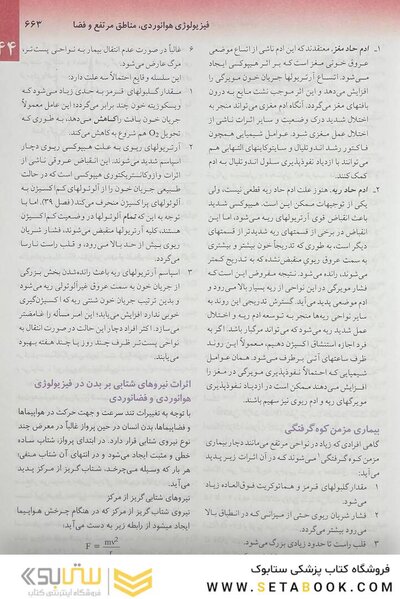 فیزیولوژی هوانوردی، مناطق مرتفع و فضا
۶۶۳
۴۴
۱ـ ادم حاد مغز. معتقدند که این ادم ناشی از اتساع موضعی
عروق خونی مغز است که بر اثر هیپوکسی ایجاد
می‌شود. اتساع آرتریولها جریان خون مویرگی را
افزایش می‌دهد و این اثر موجب نشت مایع به درون
بافتهای مغز می‌گردد. آنگاه ادم مغزی می‌تواند منجر به
اختلال شدید درک وضعیت و سایر اثرات ناشی از
اختلال عمل مغزی شود. عوامل شیمیایی همچون
فاکتور رشد اندوتلیال و سایتوکاینهای التهابی هم
می‌توانند با ازدیاد نفوذپذیری سلول اندوتلیال به ادم
کمک کنند.
۲ـ ادم حاد ریه. هنوز علت ادم حاد ریه قطعی نیست، ولی
یکی از توجیهات ممکن این است. هیپوکسی شدید
باعث انقباض قوی آرتریولهای ریه می‌شود، اما این
انقباض در برخی از قسمتهای ریه شدیدتر از قسمتهای
دیگر است، به طوری که تدریجاً خون بیشتر و بیشتری
به سمت عروق ریوی منقبض‌نشده که به تدریج کمتر
می‌شوند، رانده می‌شود. نتیجه مفروض این است که
فشار مویرگی در این نواحی از ریه بسیار بالا می‌رود و
ادم موضعی پدید می‌آید. گسترش تدریجی این روند به
سایر نواحی ریه‌ها منجر به توسعه ادم ریه و اختلال
عمل شدید ریه می‌شود که می‌تواند مرگبار باشد. اگر به
فرد اجازه استنشاق اکسیژن دهیم، معمولاً این روند
ظرف ساعتهای آتی برطرف می‌شود. همان عوامل
شیمیایی که احتمالاً نفوذپذیری مویرگی در مغز را
افزایش می‌دهند ممکن است در ازدیاد نفوذپذیری
مویرگهای ریه و ادم ریوی نیز سهیم باشند.
بیماری مزمن کوه‌گرفتگی
گاهی افرادی که زیاد در نواحی مرتفع می‌مانند دچار بیماری
مزمن کوه‌گرفتگی می‌شوند که در آن اثرات زیر پدید
می‌آید:
۱ مقدار گلبولهای قرمز و هماتوکریت فوق‌العاده زیاد
می‌شود.
۲ فشار شریان ریوی حتی از میزانی که در انطباق بالا
می‌رود بیشتر می‌گردد.
۳ قلب راست تا حدود زیادی بزرگ می‌شود.
۶ غالباً در صورت عدم انتقال بیمار به نواحی پست‌تر،
مرگ عارض می‌شود.
این سلسله وقایع احتمالاً سه علت دارد:
۱ مقدار گلبولهای قرمز به حدی زیاد می‌شود که
ویسکوزیته خون چند برابر می‌گردد؛ این عامل معمولاً
جریان خون بافت را کاهش می‌دهد، به طوری که
تحویل O₂ هم شروع به کاهش می‌کند.
۲ آرتریولهای ریوی به علت هیپوکسی ریوی دچار
اسپاسم شدید می‌شوند. این انقباض عروقی ناشی از
اثرات وازوکانستریکتوری هیپوکسی است که در حالت
طبیعی جریان خون را از آلوئولهای کم اکسیژن به
آلوئولهای پراکسیژن منحرف می‌کند (فصل ۳۹). اما با
توجه به این که تمام آلوئولها در وضعیت کم‌اکسیژن
هستند، کلیه آرتریولها منقبض می‌شوند، فشار شریان
ریوی بیش از حد بالا می‌رود، و قلب راست نارسا
می‌گردد.
۳ اسپاسم آرتریولهای ریه باعث رانده‌شدن بخش بزرگی
از جریان خون به سمت عروق غیرآلوئولی ریه می‌شود
و بدین ترتیب جریان خون شنتی ریه که اکسیژن‌گیری
خوبی ندارد افزایش می‌یابد؛ این امر مسأله را غامضتر
می‌سازد. اکثر افراد دچار این حالت در صورت انتقال به
نواحی پست‌تر ظرف چند روز یا چند هفته بهبود
می‌یابند.
اثرات نیروهای شتابی بر بدن در فیزیولوژی
هوانوردی و فضانوردی
با توجه به تغییرات تند سرعت و جهت حرکت در هواپیماها
و فضاپیماها، بدن انسان در حین پرواز غالباً در معرض چند
نوع نیروی شتابی قرار دارد. در ابتدای پرواز، شتاب ساده
خطی و مثبت ایجاد می‌شود و در انتهای آن شتاب منفی،
هر بار که وسیله می‌چرخد، شتاب گریز از مرکز پدید
می‌آید.
نیروهای شتابی گریز از مرکز
نیروی شتاب گریز از مرکز که در هنگام چرخش هواپیما
ایجاد میشود از رابطه زیر به دست می‌آید:
F = mv²
فروشگاه کتاب پزشکی ستابوک
WWW.SETABOOK.COM
ستابوک
فروشگاه اینترنتی کتاب